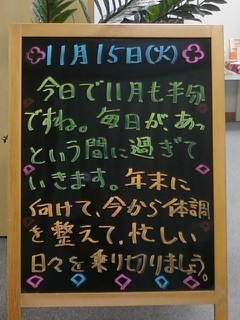 11月15日(火)
今日で11月も半分
ですね。毎日があっ
という間に過ぎて
いきます。年末に
向けて、今から体調
を整えて、忙しい
日々を乗り切りましょう。